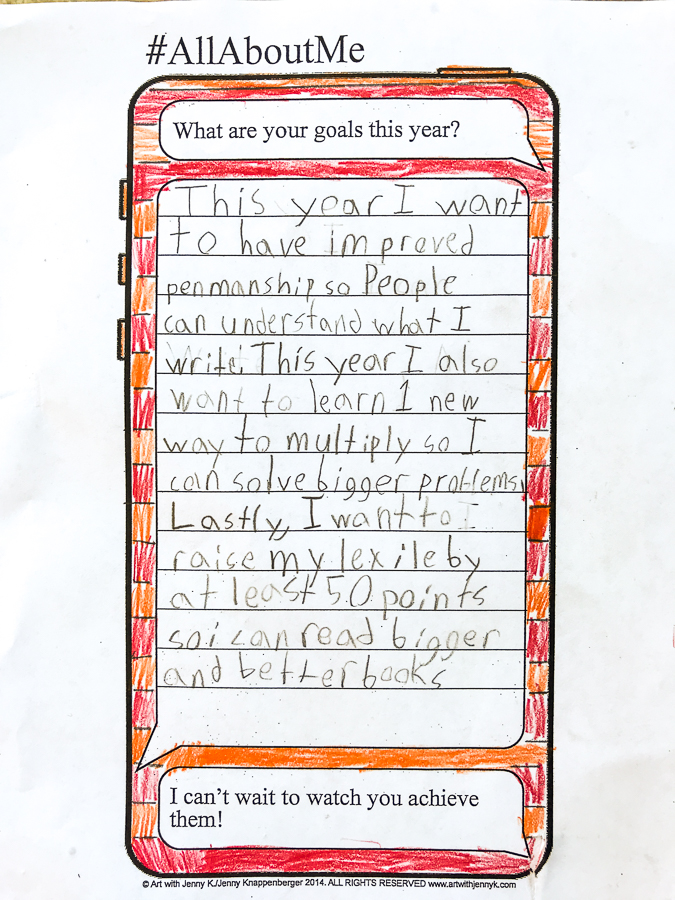 #AllAboutMe
What are your goals this year?
This year I want
to have improved
penmanship so People
can understand what I
write. This year I also
want to learn 1 new
way to multiply so I
can solve bigger problems.
Lastly, I want to
raise my lexile by
at least 50 points
so i can read bigger
and better books
I can't wait to watch you achieve
them!
© Art with Jenny K./Jenny Knappenberger 2014. ALL RIGHTS RESERVED www.artwithjennyk.com